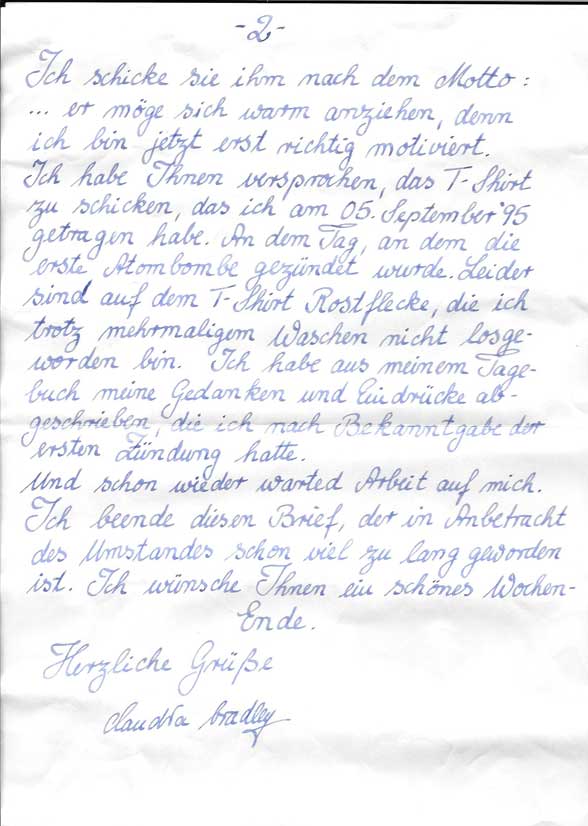 -2-
Ich schicke sie ihm nach dem Motto:
... er möge sich warm anziehen, denn
ich bin jetzt erst richtig motiviert.
Ich habe Ihnen versprochen, das T-Shirt
zu schicken, das ich am 05. September '95
getragen habe. An dem Tag, an dem die
erste Atombombe gezündet wurde. Leider
sind auf dem T-Shirt Rostflecke, die ich
trotz mehrmaligem Waschen nicht losge-
worden bin. Ich habe aus meinem Tage-
buch meine Gedanken und Eindrücke ab-
geschrieben, die ich nach Bekanntgabe der
ersten Zündung hatte.
Und schon wieder warted Arbeit auf mich.
Ich beende diesen Brief, der in Anbetracht
des Umstandes schon viel zu lang geworden
ist. Ich wünsche Ihnen ein schönes Wochen-
Ende.
Herzliche Grüße
Claudia Bradley